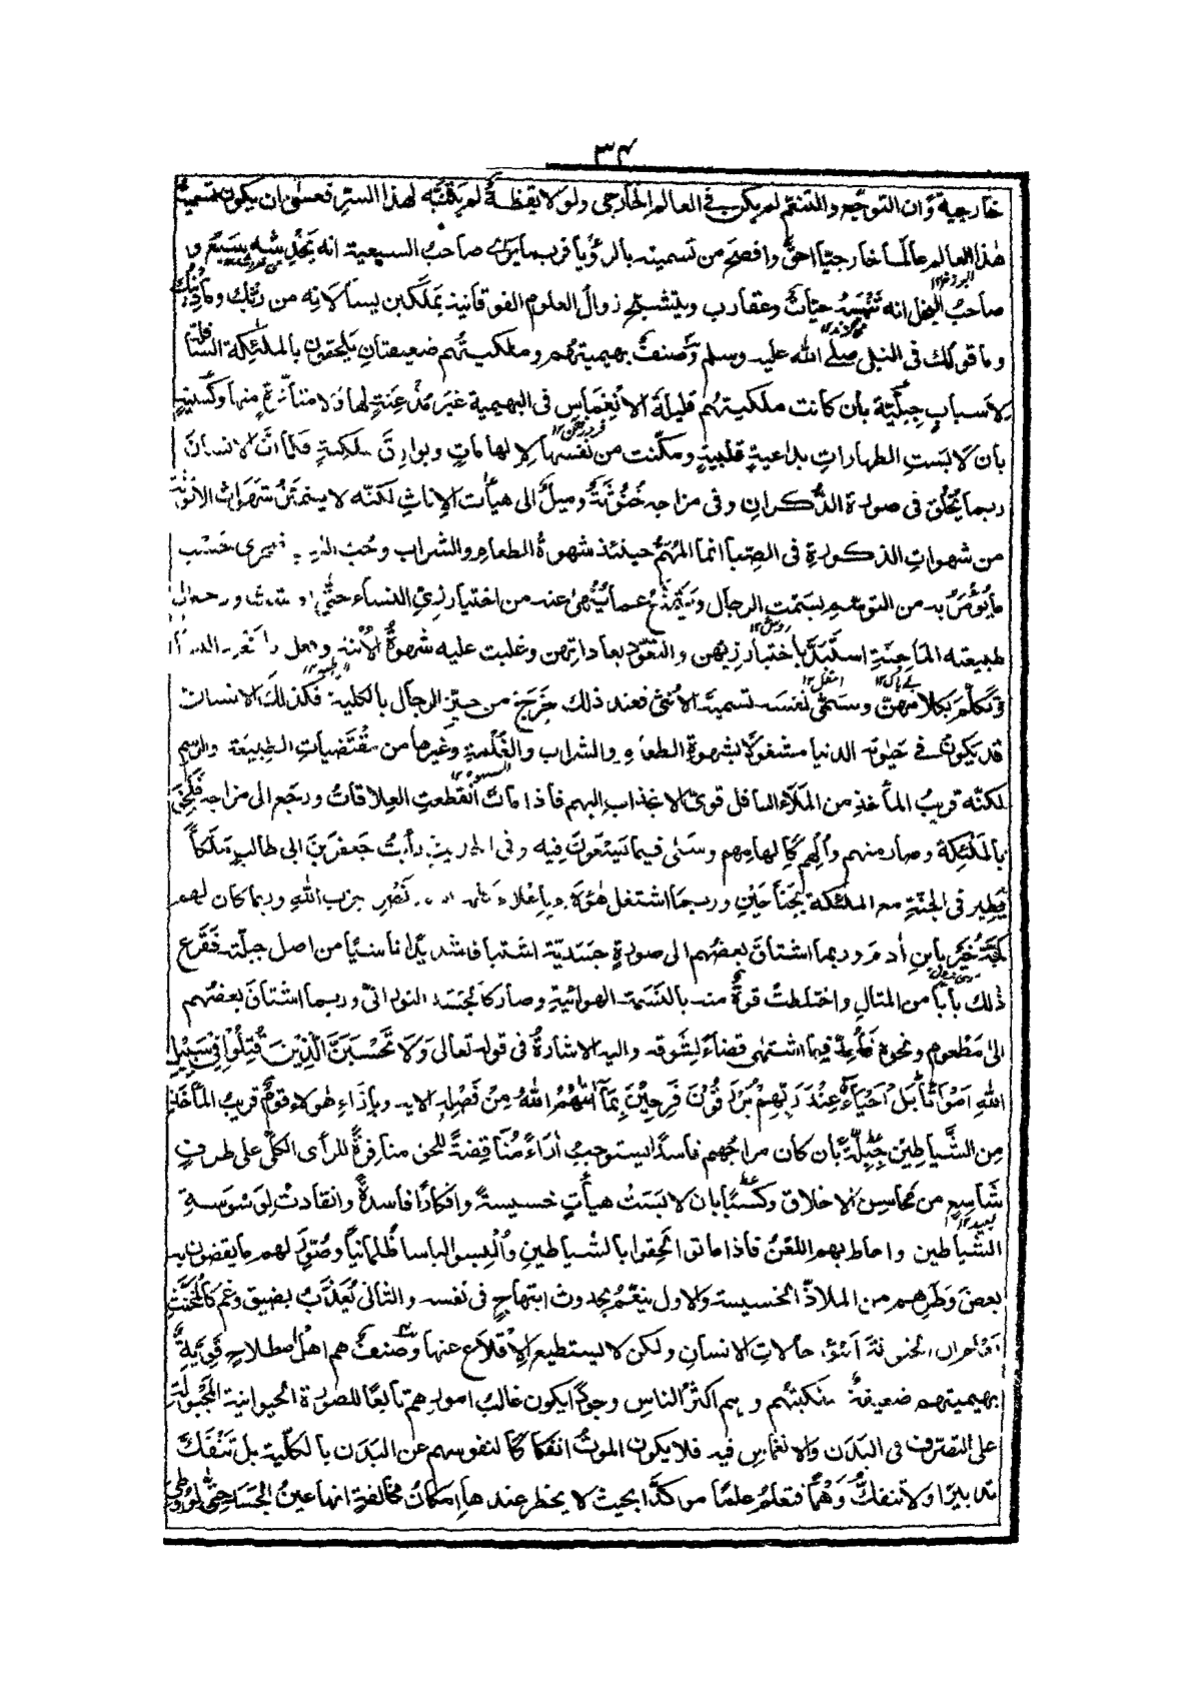 ٣٤
خارجية وان التوجع والتنعم لم يكن في العالم الخارجي ولو لا يقظة لم يتنبه لهذا السر فعسى ان يكون تسمية
هذا العالم عالما خارجيا احق وافصح من تسميته بالرؤيا فربما يرى صاحب السبعية انه يخدشه سبع و
صاحب البخل انه تنهسه حيات وعقارب ويتشبح زوال العلوم الفوقانية بملكين يسألانه من ربك وما دينك
وما قولك في النبي صلى الله عليه وسلم وصنف بهيميتهم وملكيتهم ضعيفتان يلحقون بالملئكة السافلة
لاسباب جبلية بأن كانت ملكيتهم قليلة الانغماس في البهيمية غير مذعنة لها ولا متأثرة منها وكسبية
بأن لابست الطهارات بداعية قلبية ومكنت من نفسها لإلهامات وبوارق ملكية فكما أن الانسان
ربما يخلق في صورة الذكران وفي مزاجه خنوثة وميل الى هيأت الاناث لكنه لا يتميز شهوات الأنوثة
من شهوات الذكورة في الصبا انما المهم حينئذ شهوة الطعام والشراب وحب فيجري حسب
ما يؤمر به من التوسم بسمت الرجال ويمتنع عما ينهى عنه من اختيار زي النساء حتى اذا ورجع الى
طبيعته الماجنة استبد باختيار زيهن والتعود بعاداتهن وغلبت عليه شهوة الأبنة وفعل ما
وتكلم بكلامهن وسمى نفسه تسمية الأنثى فعند ذلك خرج من حيز الرجال بالكلية فكذلك الانسان
قد يكون في حيوته الدنيا مشغولا بشهوة الطعام والشراب والغلمة وغيرها من مقتضيات الطبيعة والرسم
لكنه قريب المأخذ من الملأ السافل قوى الانجذاب اليهم فاذا مات انقطعت العلاقات ورجع الى مزاجه فلحق
بالملئكة وصار منهم وألهم كإلهامهم وسعى فيما يسعون فيه وفي الحديث رأيت جعفر بن ابي طالب ملكا
يطير في الجنة مع الملئكة بجناحين وربما اشتغل هؤلاء بإعلاء نصر حزب الله وربما كان لهم
لمة خير بابن آدم وربما اشتاق بعضهم الى صورة جسدية اشتياقا شديدا ناشئا من اصل جبلته فقرع
ذلك بابا من المثال واختلطت قوة منه بالنسمة الهوائية وصار كالجسد النوراني وربما اشتاق بعضهم
الى مطعوم ونحوه فأمد فيما اشتهى قضاء لشوقه واليه الاشارة في قوله تعالى ولا تحسبن الذين قتلوا في سبيل
الله امواتا بل احياء عند ربهم يرزقون فرحين بما آتهم الله من فضله الاية وبإذاء هؤلاء قوم قريب المأخذ
من الشياطين جبلة بأن كان مزاجهم فاسدا يستوجب آراء مناقضة للحق منافرة للرأى الكلى على طرف
شاسع من محاسن الاخلاق وكسبا بان لابست هيأت خسيسة وافكارا فاسدة وانقادت لوسوسة
الشياطين واحاط بهم اللعن فاذا ماتوا الحقوا بالشياطين وألبسوا لباسا ظلمانيا وصور لهم ما يقضون به
بعض وطرهم من الملاذ الخسيسة والاول ينعم بحدوث ابتهاج في نفسه والثاني يعذب بضيق وغم كالمخنث
الخنوثة أسوأ حالات الانسان ولكن لا يستطيع الإقلاع عنها وصنف هم اهل اصطلاح قوية
بهيميتهم ضعيفة ملكيتهم وهم اكثر الناس وجودا يكون غالب امورهم تابعا للصورة الحيوانية المجبولة
على التصرف في البدن والانغماس فيه فلا يكون الموت انفكاكا لنفوسهم عن البدن بالكلية بل تنفك
تدبيرا ولا تنفك وهما فتعلم علما مؤكدا بحيث لا يخطر عندها إمكان مخالفته انها عين الجسد حتى لو وطئ